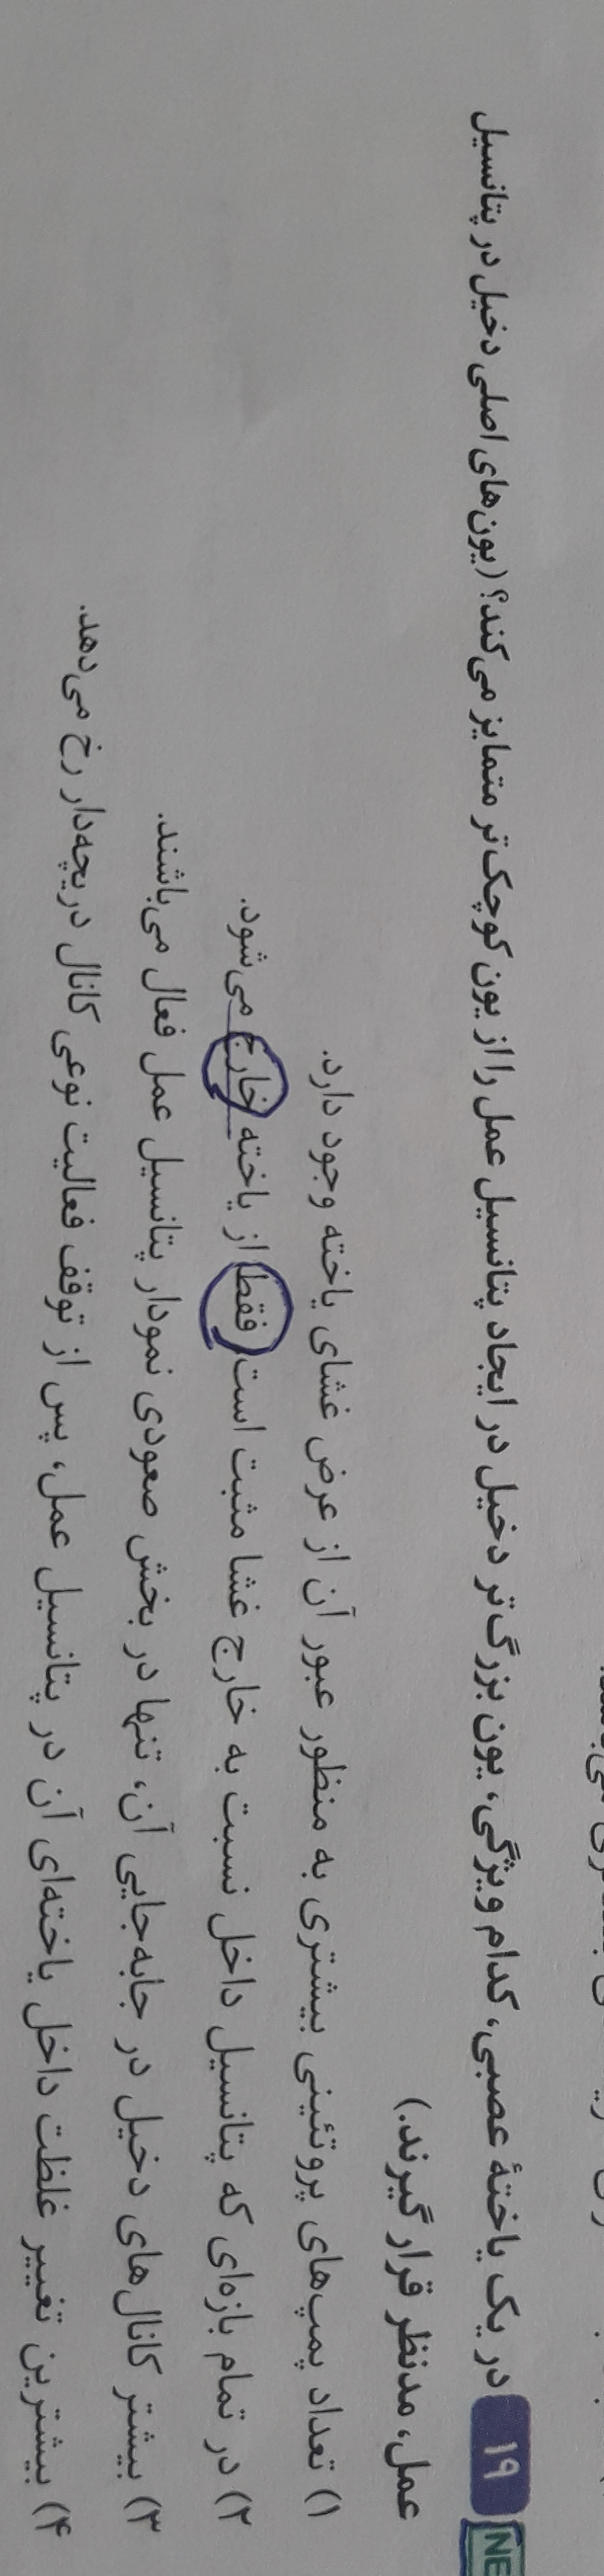 NE
۱۹ در یک یاختهٔ عصبی، کدام ویژگی، یون بزرگ‌تر دخیل در ایجاد پتانسیل عمل را از یون کوچک‌تر متمایز می‌کند؟ (یون‌های اصلی دخیل در پتانسیل
عمل، مدنظر قرار گیرند.)
۱) تعداد پمپ‌های پروتئینی بیشتری به منظور عبور آن از عرض غشای یاخته وجود دارد.
۲) در تمام بازه‌ای که پتانسیل داخل نسبت به خارج غشا مثبت است فقط از یاخته خارج می‌شود.
۳) بیشتر کانال‌های دخیل در جابه‌جایی آن، تنها در بخش صعودی نمودار پتانسیل عمل فعال می‌باشند.
۴) بیشترین تغییر غلظت داخل یاخته‌ای آن در پتانسیل عمل، پس از توقف فعالیت نوعی کانال دریچه‌دار رخ می‌دهد.